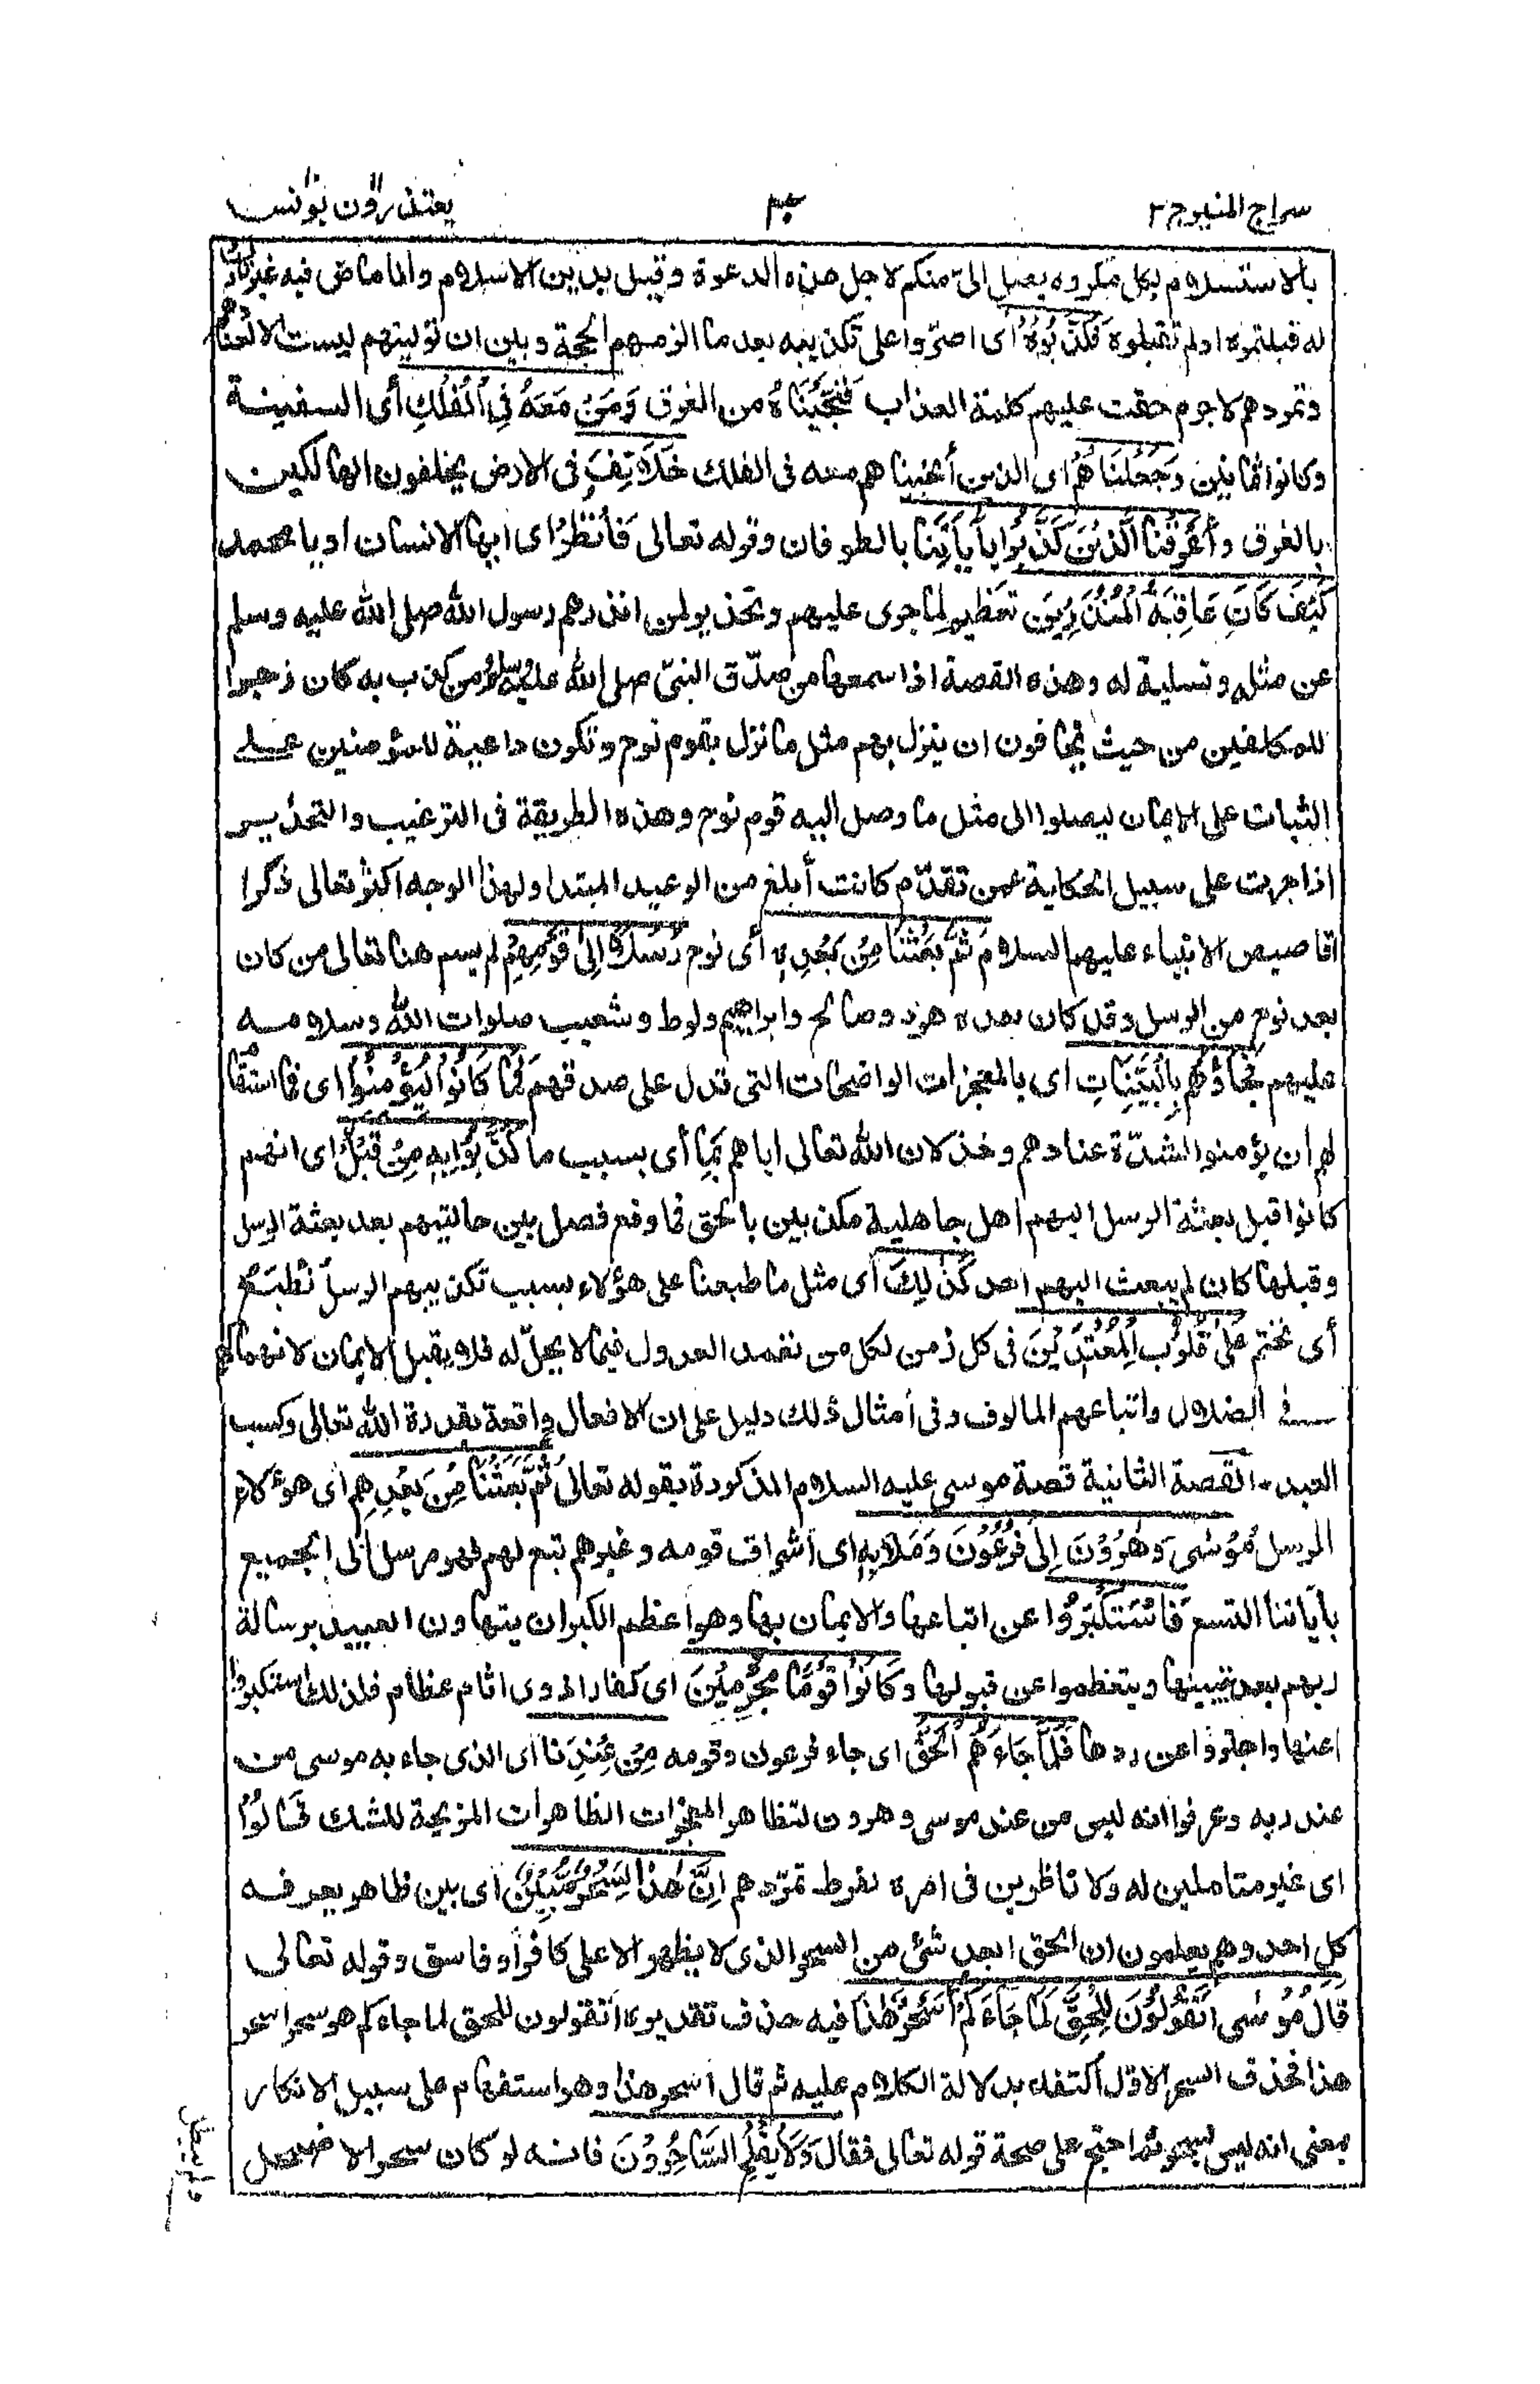 سراج المنیر ج ۲
۳۰
یعتذرون یونس
بالاستسلام لکل مکروه یصل الیّ منکم لاجل هذه الدعوة وقیل بدین الاسلام وانا ماض فیه غیر تارک
له قبلتموه او لم تقبلوه فَکَذَّبُوْهُ ای اصرّوا علی تکذیبه بعد ما الزمهم الحجة وبین ان تولیتهم لیست الا لعنادهم
وتمردهم لا جرم حقت علیهم کلمة العذاب فَنَجَّیْنَاهُ من الغرق وَمَنْ مَعَهُ فِی الْفُلْکِ أی السفینة
وکانوا ثمانین وَجَعَلْنَاهُمْ ای الذین أنجینا هم معه فی الفلک خَلَائِفَ فی الارض یخلفون الهالکین
بالغرق وَأَغْرَقْنَا الَّذِیْنَ کَذَّبُوْا بِاٰیَاتِنَا بالطوفان وقوله تعالی فَانْظُرْ ای ایها الانسان او یا محمد
کَیْفَ کَانَ عَاقِبَةُ الْمُنْذَرِیْنَ تعظیم لما جری علیهم وتحذیر لمن انذرهم رسول الله صلی الله علیه وسلم
عن مثله وتسلیة له وهذه القصة اذا سمعها من صدّق النبیّ صلی الله علیه وسلم ومن کذب به کان زجرا
للمکلفین من حیث یخافون ان ینزل بهم مثل ما نزل بقوم نوح وتکون داعیة للمؤمنین علی
الثبات علی الایمان لیصلوا الی مثل ما وصل الیه قوم نوح وهذه الطریقة فی الترغیب والتحذیر
اذا جرت علی سبیل الحکایة عمن تقدّم کانت أبلغ من الوعید المبتدا ولهذا الوجه اکثر تعالی ذکرا
اقاصیص الانبیاء علیهم السلام ثُمَّ بَعَثْنَا مِنْ بَعْدِهِ أی نوح رُسُلًا اِلٰی قَوْمِهِمْ لم یسم هنا تعالی من کان
بعد نوح من الرسل وقد کان بعده هود وصالح وابراهیم ولوط وشعیب صلوات الله وسلامه
علیهم فَجَاؤُهُمْ بِالْبَیِّنَاتِ ای بالمعجزات الواضحات التی تدل علی صدقهم فَمَا کَانُوْا لِیُؤْمِنُوْا ای فما استقام
لهم ان یؤمنوا لشدّة عنادهم وخذلان الله تعالی ایاهم بِمَا أی بسبب ما کَذَّبُوْا بِهِ مِنْ قَبْلُ ای انهم
کانوا قبل بعثة الرسل الیهم اهل جاهلیة مکذبین بالحق فما وقع فصل بین حالتیهم بعد بعثة الرسل
وقبلها کان لم یبعث الیهم احد کَذٰلِکَ أی مثل ما طبعنا علی هؤلاء بسبب تکذیبهم الرسل نَطْبَعُ
أی نختم عَلٰی قُلُوْبِ الْمُعْتَدِیْنَ فی کل زمن لکل من تعمد العدول فیما لا یحلّ له فلا یقبل الایمان لانهماکهم
فی الضلال واتباعهم المالوف وفی أمثال ذلک دلیل علی ان الافعال واقعة بقدرة الله تعالی وکسب
العبد القصة الثانیة قصة موسی علیه السلام المذکورة بقوله تعالی ثُمَّ بَعَثْنَا مِنْ بَعْدِهِمْ أی هؤلاء
الرسل مُوْسٰی وَهٰرُوْنَ اِلٰی فِرْعَوْنَ وَمَلَاۡئِهِ ای أشراف قومه وغیرهم تبع لهم فهو مرسل الی الجمیع
بِاٰیَاتِنَا التسع فَاسْتَکْبَرُوْا عن اتباعها والایمان بها وهو اعظم الکبر ان یتهاون العبید برسالة
ربهم بعد تبیینها ویتعظموا عن قبولها وَکَانُوْا قَوْمًا مُجْرِمِیْنَ ای کفارا ذوی اثام عظام فلذلک استکبروا
عنها واجترؤا عن ردها فَلَمَّا جَاءَهُمُ الْحَقُّ ای جاء فرعون وقومه مِنْ عِنْدِنَا ای الذی جاء به موسی من
عند ربه وعرفوا انه لیس من عند موسی وهرون لتظاهر المعجزات الظاهرات المزیحة للشک قَالُوْا
ای غیر متاملین له ولا ناظرین فی امره لفرط تمرّدهم اِنَّ هٰذَا لَسِحْرٌ مُبِیْنٌ أی بین ظاهر یعرفه
کل احد وهم یعلمون ان الحق ابعد شئ من السحر الذی لا یظهر الا علی کافر أو فاسق وقوله تعالی
قَالَ مُوْسٰی اَتَقُوْلُوْنَ لِلْحَقِّ لَمَّا جَاءَکُمْ أَسِحْرٌ هٰذَا فیه حذف تقدیره أتقولون للحق لما جاءکم هو سحر اسحر
هذا فحذف السحر الاوّل اکتفاء بدلالة الکلام علیه ثم قال أسحر هذا وهو استفهام علی سبیل الانکار
بمعنی انه لیس بسحر ثم احتج علی صحة قوله تعالی فقال وَلَا یُفْلِحُ السَّاحِرُوْنَ فانه لو کان سحرا لاضمحل